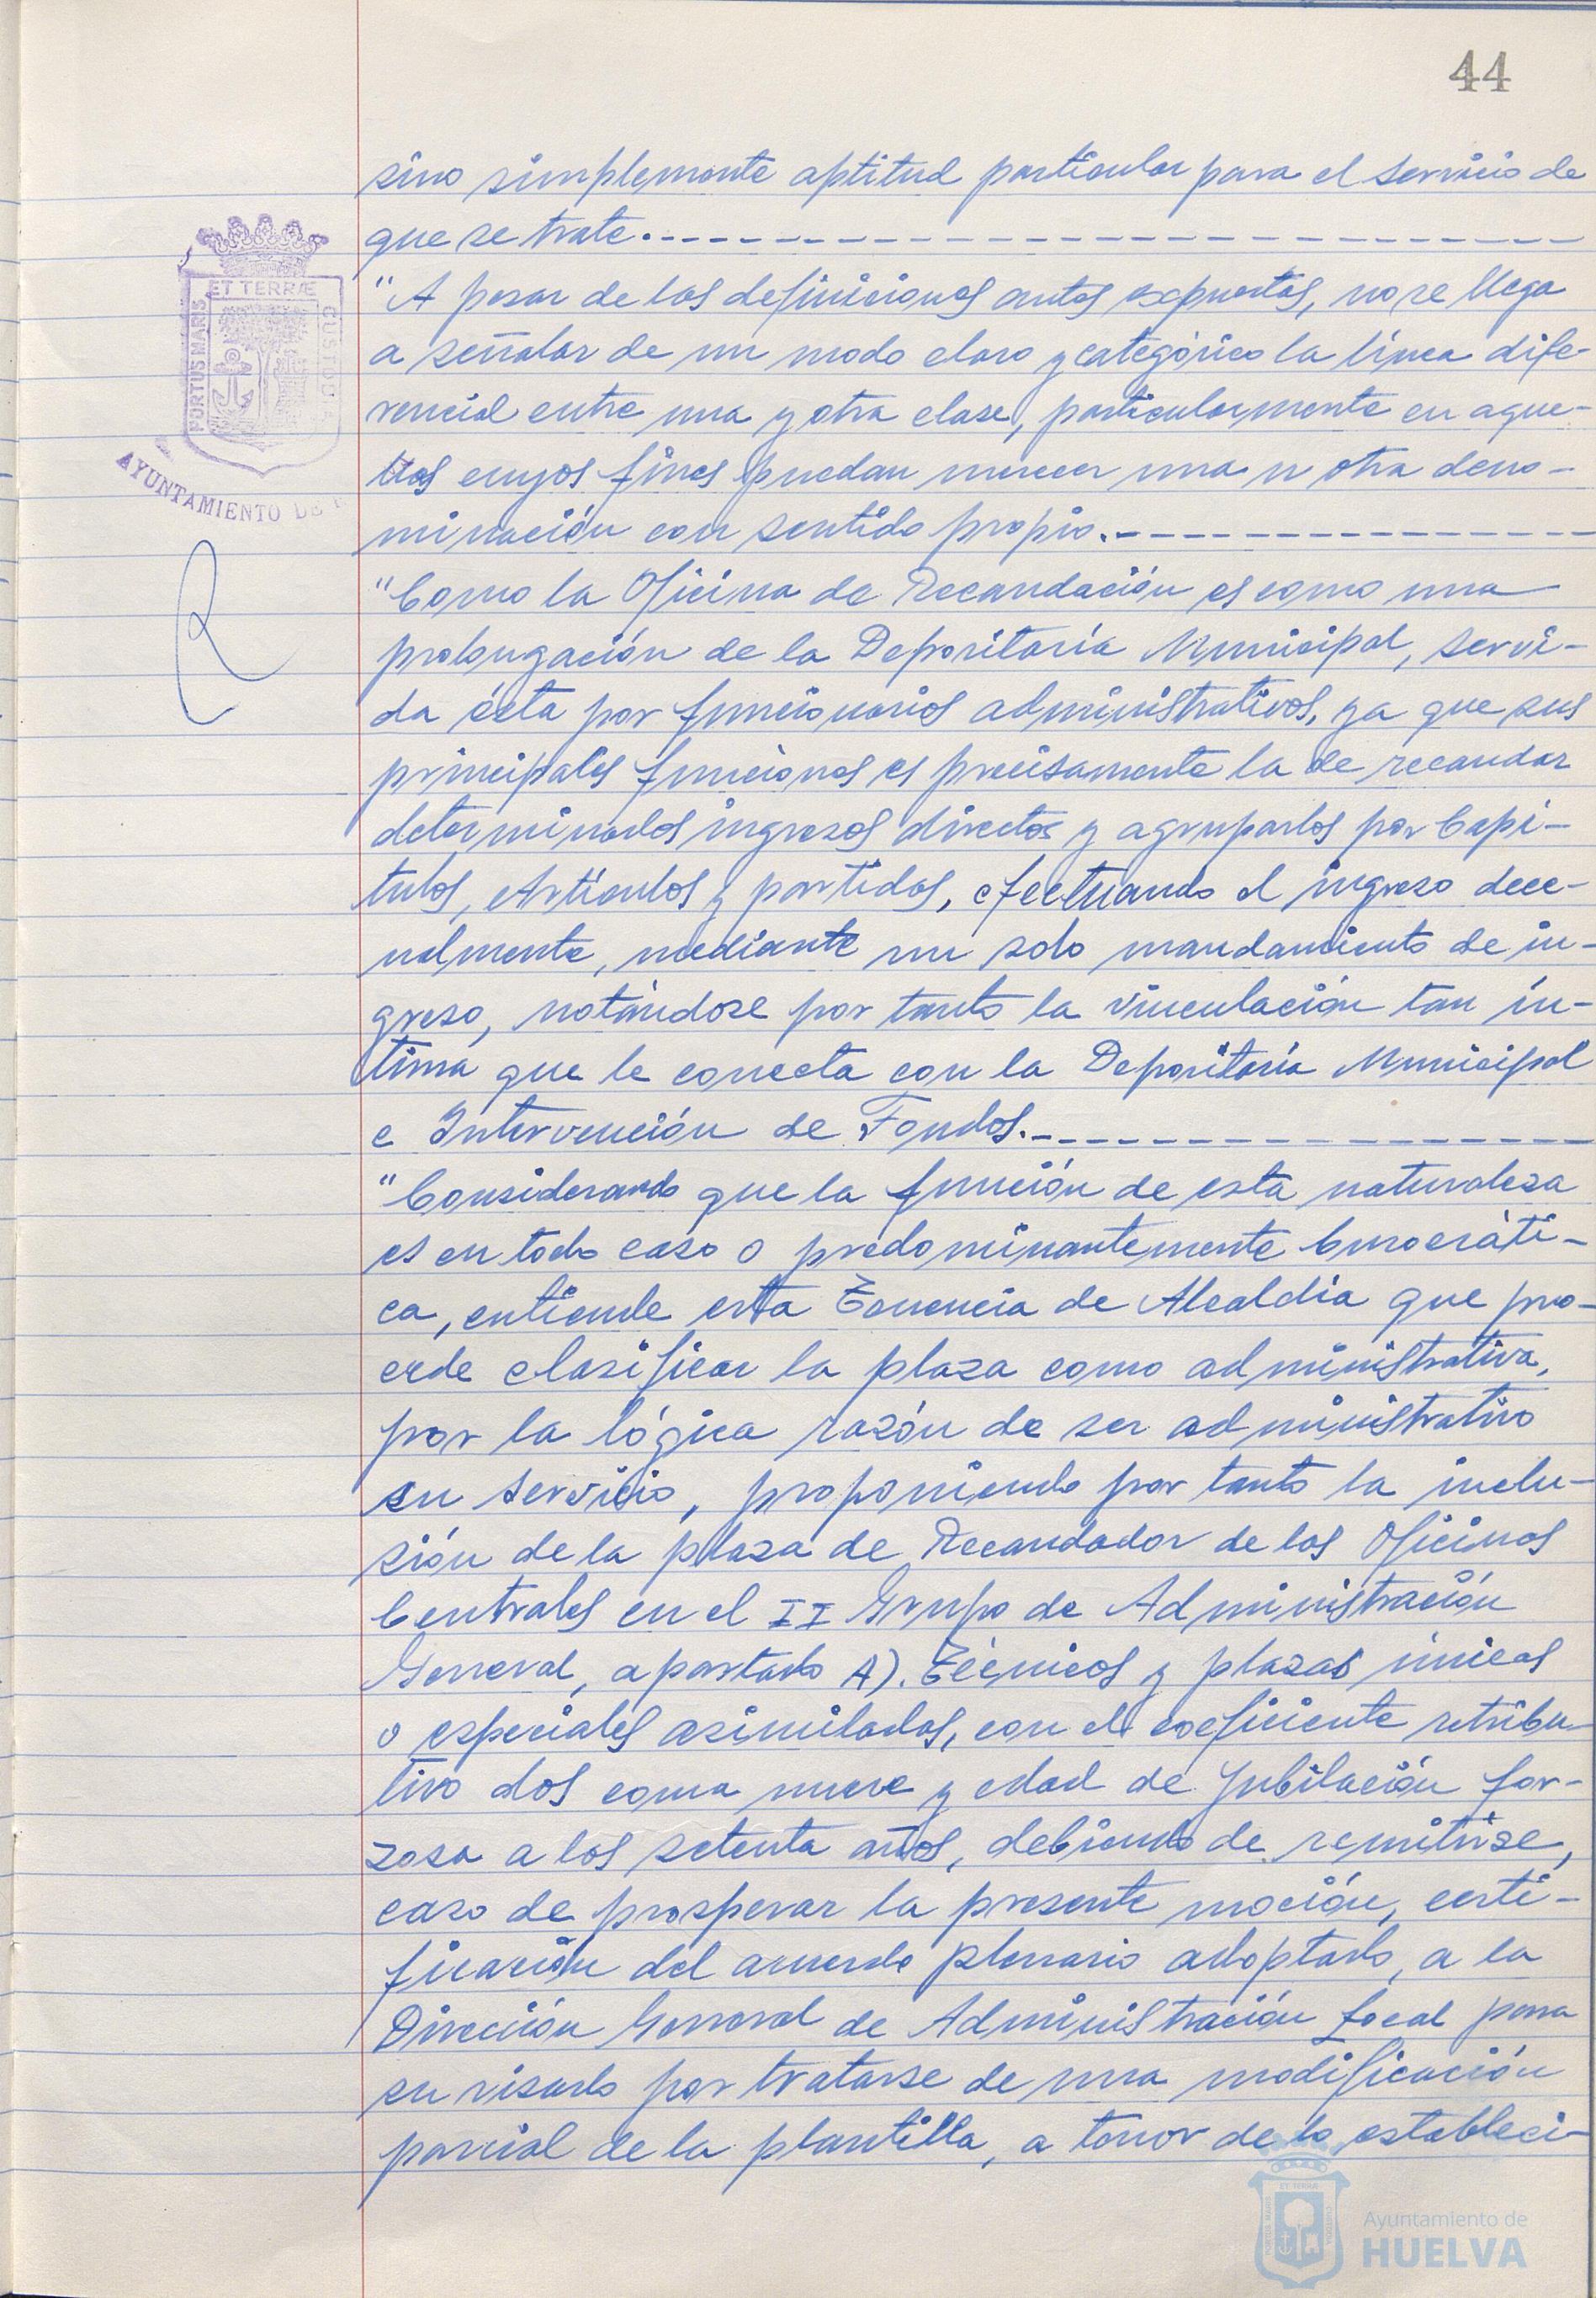 44
sino simplemente aptitud particular para el servicio de
que se trate.
"A pesar de las definiciones antes expuestas, no se llega
a señalar de un modo claro y categórico la línea dife-
rencial entre una y otra clase, particularmente en aque-
llos cuyos fines puedan merecer una u otra deno-
minación con sentido propio.
"Como la Oficina de Recaudación es como una
prolongación de la Depositaría Municipal, servi-
da ésta por funcionarios administrativos, ya que sus
principales funciones es precisamente la de recaudar
determinados ingresos directos y agruparlos por Capí-
tulos, Artículos y partidas, efectuando el ingreso dece-
nalmente, mediante un solo mandamiento de in-
greso, notándose por tanto la vinculación tan ín-
tima que le conecta con la Depositaría Municipal
e Intervención de Fondos.
"Considerando que la función de esta naturaleza
es en todo caso o predominantemente burocráti-
ca, entiende esta Tenencia de Alcaldía que pro-
cede clasificar la plaza como administrativa,
por la lógica razón de ser administrativo
su servicio, proponiendo por tanto la inclu-
sión de la plaza de Recaudador de las Oficinas
Centrales en el II Grupo de Administración
General, apartado A). Técnicos y plazas únicas
o especiales asimiladas, con el coeficiente retribu-
tivo dos coma nueve y edad de jubilación for-
zosa a los setenta años, debiendo de remitirse,
caso de prosperar la presente moción, certi-
ficación del acuerdo plenario adoptado, a la
Dirección General de Administración Local para
su visado por tratarse de una modificación
parcial de la plantilla, a tenor de lo estableci-
PORTUS MARIS
ET TERRÆ
CUSTODIA
AYUNTAMIENTO DE
Ayuntamiento de
HUELVA